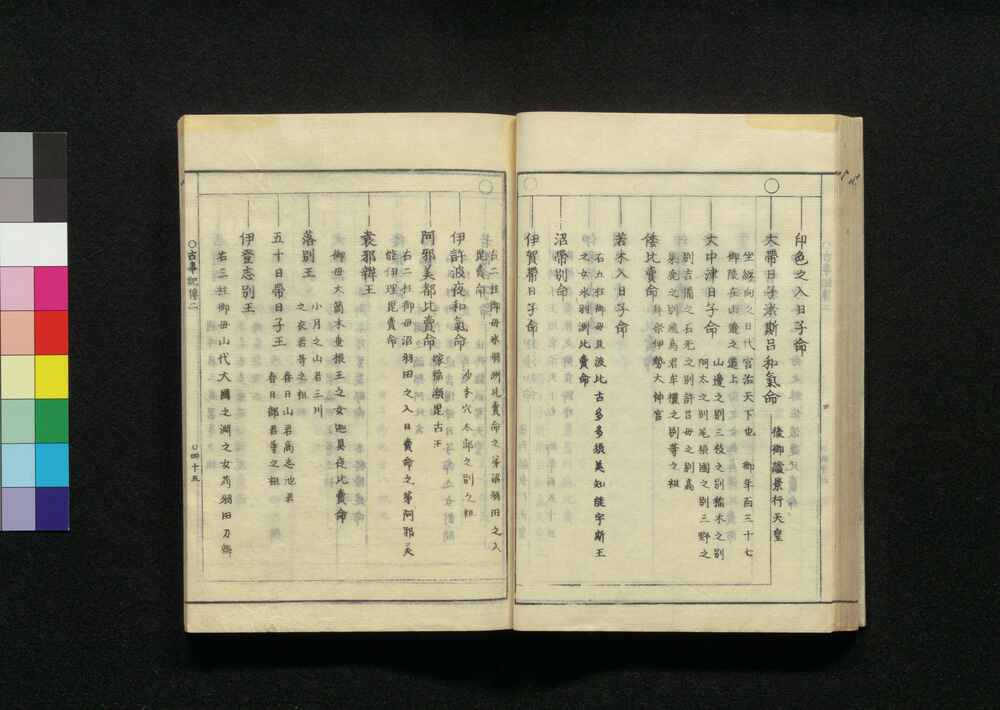 印色之入日子命
大帶日子淤斯呂和氣命 後御諡景行天皇
坐纏向之日代宮治天下也 御年百三十七
御陵在山邊之道上
大中津日子命
山邊之別三枝之別稻木之別
阿太之別尾張國之別三野之
別吉備之石无之別許呂母之別高
巢鹿之別飛鳥君牟禮之別等之祖
倭比賣命 拜祭伊勢大神宮
若木入日子命
右五柱御母旦波比古多多須美知能宇斯王
之女氷羽洲比賣命
沼帶別命
伊賀帶日子命
右二柱御母氷羽洲比賣命之弟沼羽田之入
毘賣命
伊許婆夜和氣命 沙本穴太部之別之祖
阿邪美都比賣命 嫁稻瀬毘古王
右二柱御母沼羽田之入日賣命之弟阿邪美
能伊理毘賣命
袁邪辨王
御母大箇木垂根王之女迦具夜比賣命
落別王
小月之山君三川
之衣君等之祖
五十日帶日子王
春日山君高志池君
春日部君等之祖
伊登志別王
右三柱御母山代大國之淵之女苅羽田刀辨
○古事記傳二
○四十五